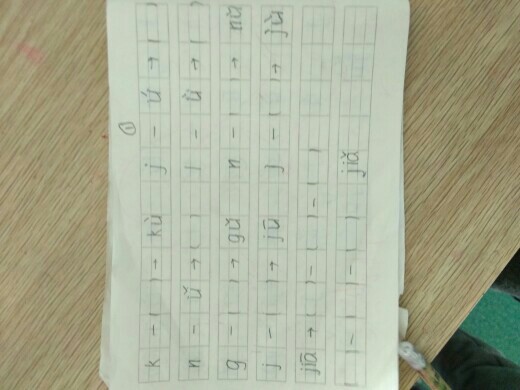 ①
k – ( ) → kù j – ǘ → ( )
n – ǚ → ( ) l – ǜ → ( )
g – ( ) → gǔ n – ( ) → nǚ
j – ( ) → jū j – ( ) → jù
jiā → ( ) – ( ) – ( )
( ) – ( ) – ( ) jiǎ